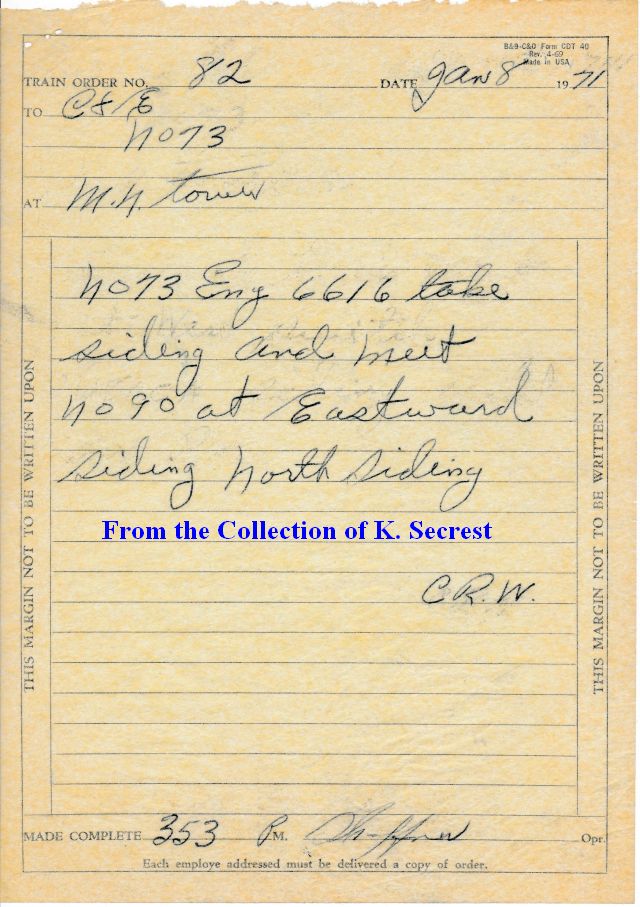 B&O-C&O Form CDT 40
Rev. 4-69
Made in USA
TRAIN ORDER NO. 82 DATE Jan 8 1971
TO C&E
No 73
AT M.N. tower
No 73 Eng 6616 take
siding and meet
No 90 at Eastward
siding North siding
From the Collection of K. Secrest
C.R.W.
THIS MARGIN NOT TO BE WRITTEN UPON
THIS MARGIN NOT TO BE WRITTEN UPON
MADE COMPLETE 353 P M. Opr.
Each employe addressed must be delivered a copy of order.